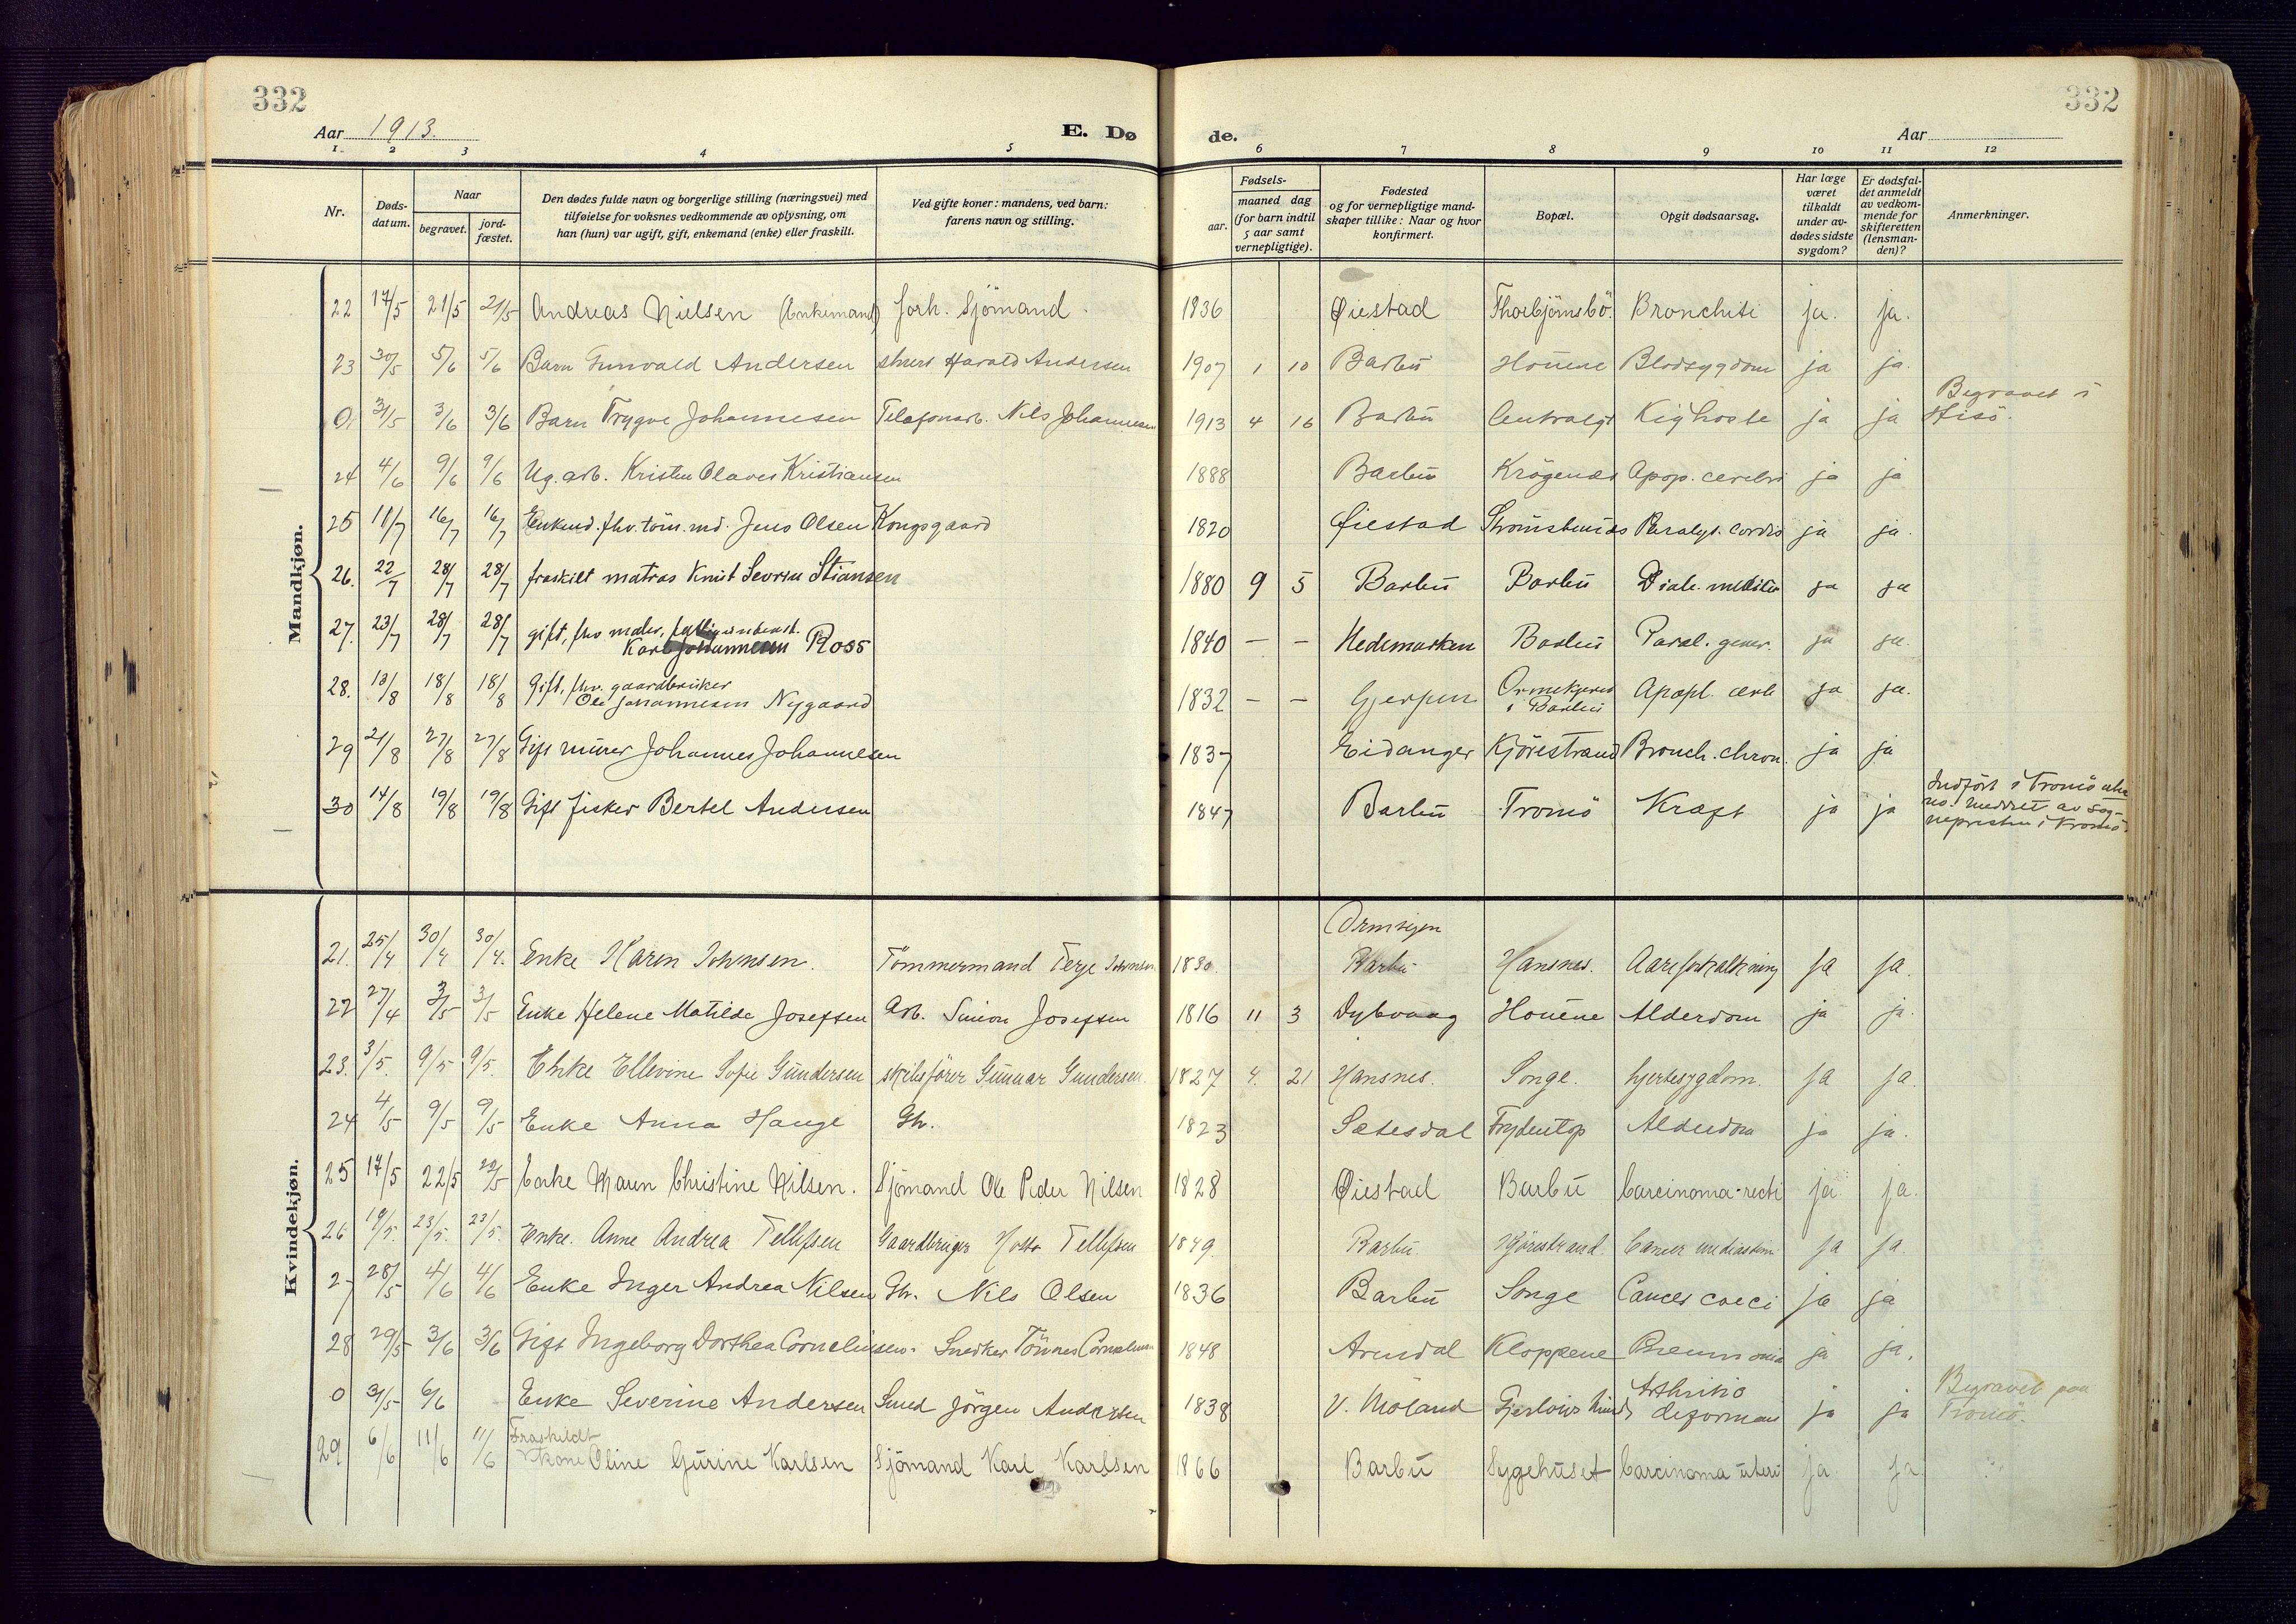 332
332
Aar 1913.
E. Dø
de.
Aar
1 2 3 4 5 6 7 8 9 10 11 12
Nr.
Døds-datum.
Naar
begravet.
jord-fæstet.
Den dødes fulde navn og borgerlige stilling (næringsvei) med
tilføielse for voksnes vedkommende av oplysning, om
han (hun) var ugift, gift, enkemand (enke) eller fraskilt.
Ved gifte koner: mandens, ved barn:
farens navn og stilling.
Fødsels-
aar.
maaned dag
(for barn indtil
5 aar samt
vernepligtige).
Fødested
og for vernepligtige mand-
skaper tillike: Naar og hvor
konfirmert.
Bopæl.
Opgit dødsaarsag.
Har læge
været
tilkaldt
under av-
dødes sidste
sygdom?
Er dødsfal-
det anmeldt
av vedkom-
mende for
skifteretten
(lensman-
den)?
Anmerkninger.
Mandkjøn.
22 17/5 21/5 21/5 Andreas Nielsen (Enkemand) forh. Sjömand. 1836 Øiestad Thorbjörnsbö. Bronchiti ja. ja.
23 30/5 5/6 5/6 Barn Gunvald Andersen Harald Andersen 1907 1 10 Barbu Houene Blodsygdom ja ja.
0 31/5 3/6 3/6 Barn Trygve Johannesen Telefonarb. Nils Johannesen 1913 4 16 Barbu Centralgt Kighoste ja ja Begravet i Hisö.
24 4/6 9/6 9/6 Ug. arb. Kristen Olaves Kristiansen 1888 Barbu Krögenes Apop. cerebri ja ja
25 11/7 16/7 16/7 Enkemd. fhv. töm. md. Jens Olsen Kongsgaard 1820 Øiestad Strömsbunes Paralys. cordis ja ja.
26. 22/7 28/7 28/7 fraskilt matros Knut Severin Stiansen 1880 9 5 Barbu Barbu Diab. mellitus ja ja
27. 23/7 28/7 28/7 gift, fhv maler,
Karl Johannesen Ross 1840 – – Hedemarken Barbu Paral. gener. ja ja.
28. 13/8 18/8 18/8 Gift, fhv. gaardbruker
Ole Johannesen Nygaard 1832 – – Gjerpen i Barbu Apopl. cerb ja ja.
29 21/8 27/8 27/8 Gift murer Johannes Johannesen 1837 Eidanger Kjörestrand Bronch. chron. ja ja
30 14/8 19/8 19/8 Gift fisker Bertel Andersen 1847 Barbu Tromö Kræft ja ja Indfört i Tromö
no. meddelt av sog-
nepresten i Tromö
Kvindekjøn.
21. 25/4 30/4 30/4. Enke Karen Johnsen. Tömmermand Terje Johnsen 1830. Barbu Hansnes. Aareforkalkning ja ja.
22 27/4 3/5 3/5 Enke Helene Matilde Josefsen Arb. Simon Josefsen 1816 11 3 Dybvaag Houene Alderdom ja ja.
23. 3/5. 9/5 9/5. Enke Ellevine Sofie Gundersen skibsförer Gunnar Gundersen. 1827 4. 21 Hansnes. Songe. hjertesygdom. ja ja.
24 4/5 9/5 9/5 Enke Anna Hauge Gh. 1823 Setesdal Frydentop Alderdom ja ja.
25 17/5 22/5 22/5 Enke Maren Christine Nilsen. Sjömand Ole Peder Nilsen 1828 Øiestad Barbu Carcinoma-recti ja. ja.
26 19/5. 23/5. 23/5. Enke. Anne Andrea Tellefsen Gaardbruger Tellefsen 1849. Barbu. Kjörestrand. Cancer mediastini ja ja.
27 28/5 4/6 4/6 Enke Inger Andrea Nilsen Gh. Nils Olsen 1836 Barbu Songe Cancer coeci ja ja
28 29/5 3/6 3/6 Gift Ingeborg Dorthea Corneliusen. Snedker Tönnes Corneliusen 1848 Arendal Kloppene Pneumonia ja ja.
0 31/5 6/6 Enke Severine Andersen Smed Jörgen Andersen 1838 V. Moland Arthritis
deformans ja ja Begravet paa
Tromö.
29 6/6 11/6 11/6 Fraskildt
kone Oline Gurine Karlsen Sjömand Karl Karlsen 1866 Barbu Sygehuset Carcinoma uteri ja. ja